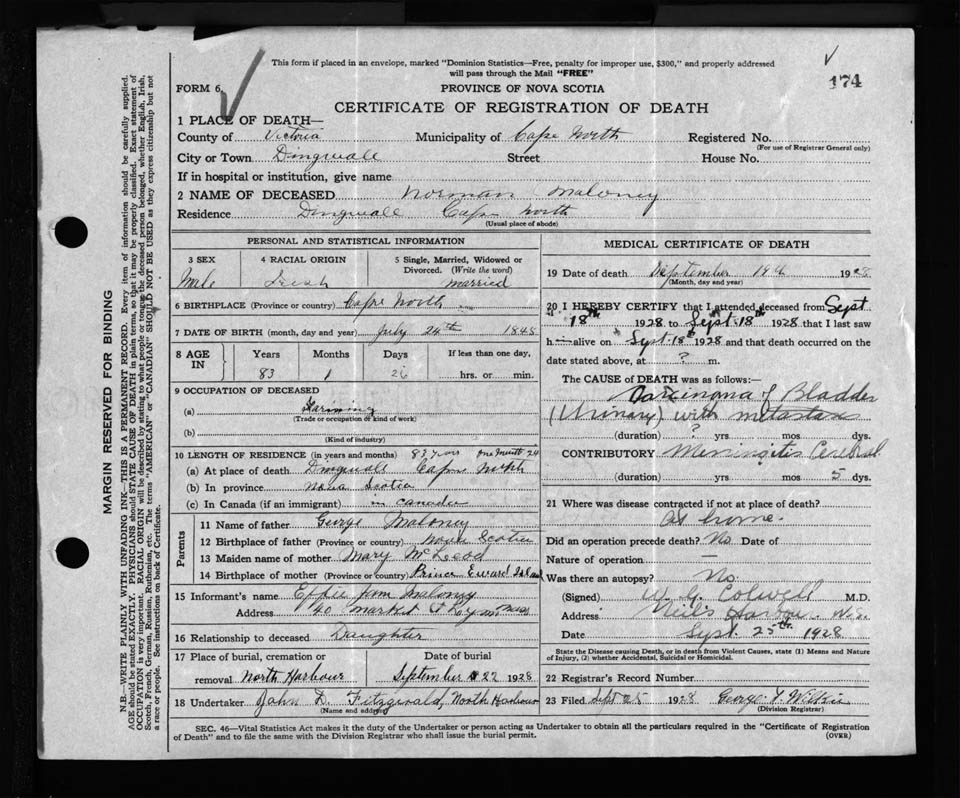 This form if placed in an envelope, marked "Dominion Statistics—Free, penalty for improper use, $300," and properly addressed
will pass through the Mail "FREE"
174
FORM 6
PROVINCE OF NOVA SCOTIA
CERTIFICATE OF REGISTRATION OF DEATH
1 PLACE OF DEATH—
County of Victoria Municipality of Cape North Registered No.
(For use of Registrar General only)
City or Town Dingwall Street House No.
If in hospital or institution, give name
2 NAME OF DECEASED Norman Maloney
Residence Dingwall Cape North
(Usual place of abode)
PERSONAL AND STATISTICAL INFORMATION
3 SEX 4 RACIAL ORIGIN 5 Single, Married, Widowed or
Divorced. (Write the word)
Male Irish married
6 BIRTHPLACE (Province or country) Cape North
7 DATE OF BIRTH (month, day and year) July 24th 1845
8 AGE IN Years Months Days If less than one day,
83 1 26 hrs. or min.
9 OCCUPATION OF DECEASED
(a) Farming
(Trade or occupation or kind of work)
(b)
(Kind of industry)
10 LENGTH OF RESIDENCE (in years and months) 83 years one month 24
(a) At place of death Dingwall Cape North
(b) In province Nova Scotia
(c) In Canada (if an immigrant) in Canada
Parents
11 Name of father George Maloney
12 Birthplace of father (Province or country) Nova Scotia
13 Maiden name of mother Mary McLeod
14 Birthplace of mother (Province or country) Prince Eward Island
15 Informant's name Effie Maloney
Address 40 Market St Lyn Mass
16 Relationship to deceased Daughter
17 Place of burial, cremation or Date of burial
removal North Harbour September 22 1928
18 Undertaker John D. Fitzgerald, North Harbour
(Name and address)
MEDICAL CERTIFICATE OF DEATH
19 Date of death September 1928
(Month, day and year)
20 I HEREBY CERTIFY that I attended deceased from Sept
18th 1928 to Sept. 18th 1928 that I last saw
h alive on Sept. 18th 1928 and that death occurred on the
date stated above, at ? m.
The CAUSE of DEATH was as follows:
Carcinoma of Bladder
(Urinary) with metastasis
(duration) ? yrs mos dys.
CONTRIBUTORY Meningitis Cerebral
(duration) yrs mos 5 dys.
21 Where was disease contracted if not at place of death?
At home.
Did an operation precede death? No Date of
Nature of operation —
Was there an autopsy? No.
(Signed) W. G. Colwell M.D.
Address Neil's Harbour N.S.
Date Sept. 25th 1928
State the Disease causing Death, or in death from Violent Causes, state (1) Means and Nature
of Injury, (2) whether Accidental, Suicidal or Homicidal.
22 Registrar's Record Number
23 Filed Sept 25 1928 George Y. Wilkie
(Division Registrar)
SEC. 46—Vital Statistics Act makes it the duty of the Undertaker or person acting as Undertaker to obtain all the particulars required in the "Certificate of Registration
of Death" and to file the same with the Division Registrar who shall issue the burial permit.
(OVER)
MARGIN RESERVED FOR BINDING
N.B.—WRITE PLAINLY WITH UNFADING INK—THIS IS A PERMANENT RECORD. Every item of information should be carefully supplied.
AGE should be stated EXACTLY. PHYSICIANS should STATE CAUSE OF DEATH in plain terms, so that it may be properly classified. Exact statement of
OCCUPATION is very important. RACIAL ORIGIN will be described by stating to what people or tongue the deceased person belonged, whether English, Irish,
Scotch, French, German, Russian, Ruthenian, etc. The terms "AMERICAN" or "CANADIAN" SHOULD NOT BE USED as they express citizenship but not
a race or people. See instructions on back of Certificate.